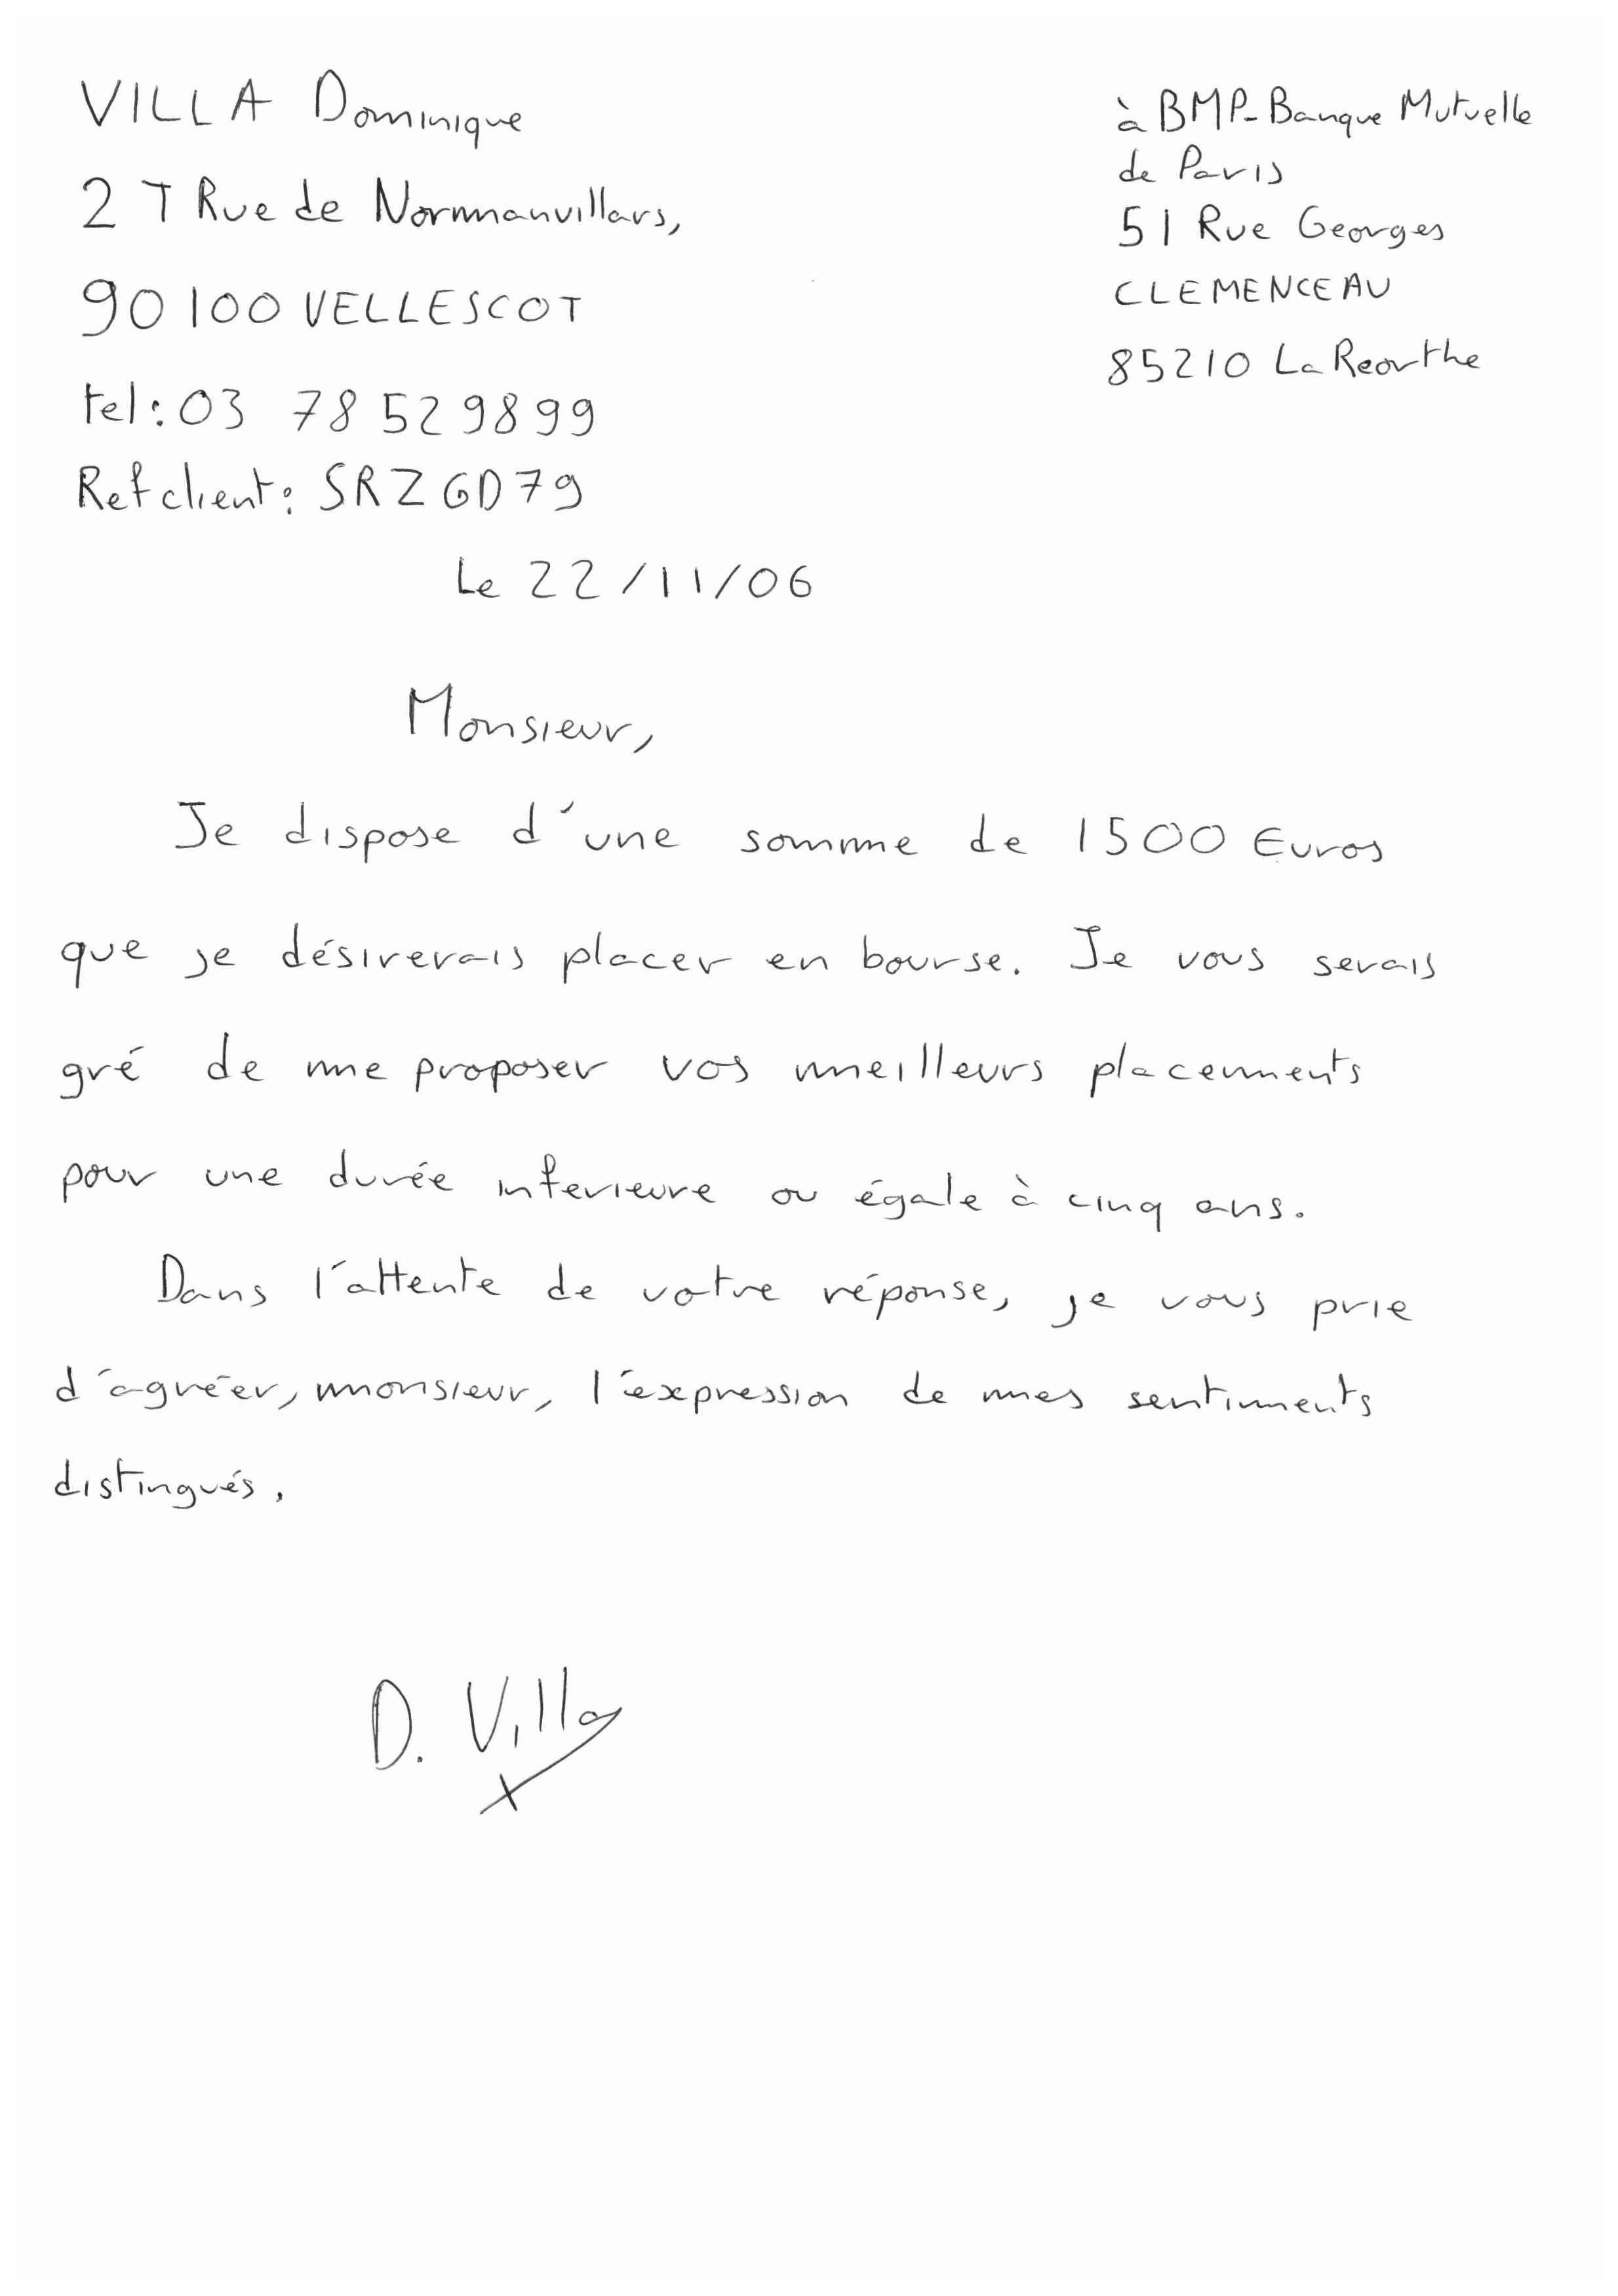 VILLA Dominique
2 T Rue de Normanvillars,
90100 VELLESCOT
tel: 03 78 52 98 99
Ref client: SRZGD79
à BMP-Banque Mutuelle
de Paris
51 Rue Georges
CLEMENCEAU
85210 La Reorthe
Le 22/11/06
Monsieur,
Je dispose d'une somme de 1500 Euros
que je désirerais placer en bourse. Je vous serais
gré de me proposer vos meilleurs placements
pour une durée inferieure ou égale à cinq ans.
Dans l'attente de votre réponse, je vous prie
d'agréer, monsieur, l'expression de mes sentiments
distingués.
D. Villa